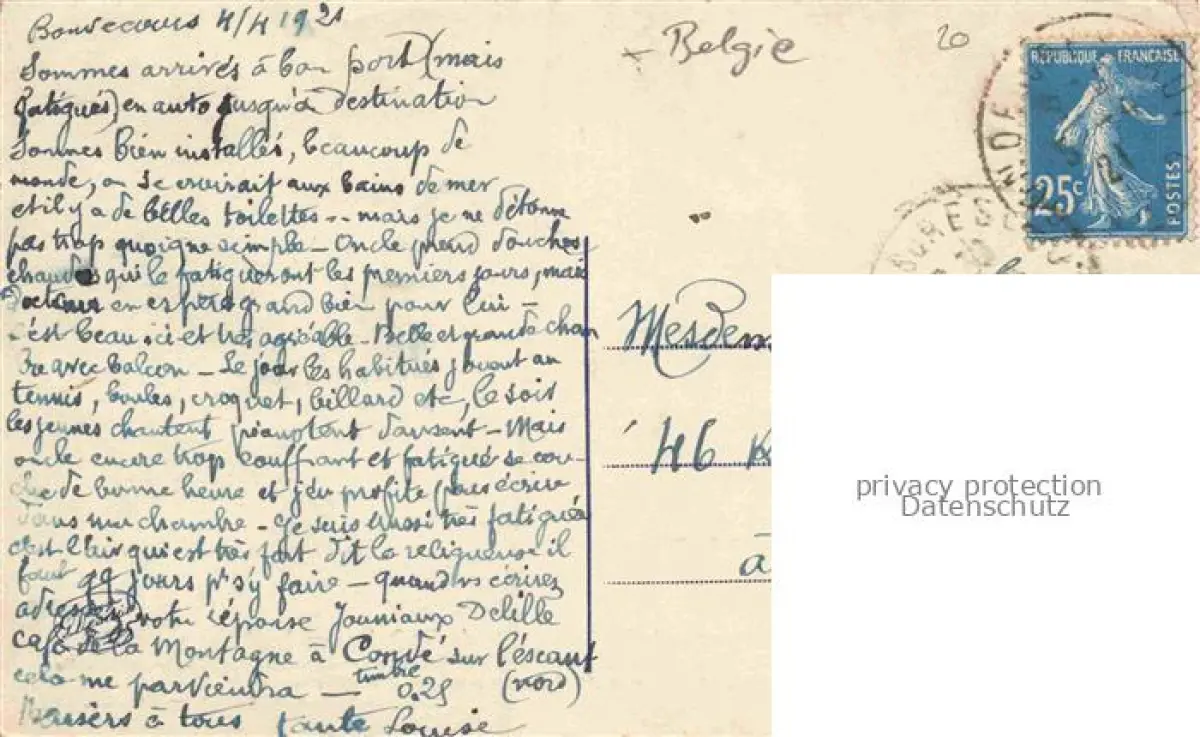 Bonsecours 4/4 1921
Sommes arrivés à bon port (mais
fatigués) en auto jusqu'à destination
Sommes bien installés, beaucoup de
monde, on se croirait aux bains de mer
et il y a de belles toilettes -- mais je ne détonne
pas trop quoique simple - Oncle prend douches
chaudes qui le fatigueront les premiers jours, mais
Docteur en espère grand bien pour lui -
c'est beau ici et très agréable - Belle et grande cham
bre avec balcon - Le jour les habitués jouent au
tennis, boules, croquet, billard etc, le soir
les jeunes chantent pianotent dansent - Mais
oncle encore trop souffrant et fatigué se cou-
che de bonne heure et j'en profite pour écrire
dans ma chambre - Je suis aussi très fatiguée
c'est l'air qui est très fort dit la religieuse il
faut jours pr s'y faire - quand vs écrirez
adressez votre réponse Jouniaux Delille
café de la Montagne à Condé sur l'éscaut
(nord)
cela me parviendra - timbre 0.25
Baisers à tous tante Louise
Belgie
20
RÉPUBLIQUE FRANÇAISE
25c
POSTES
21
Mesdem
46
à
privacy protection
Datenschutz